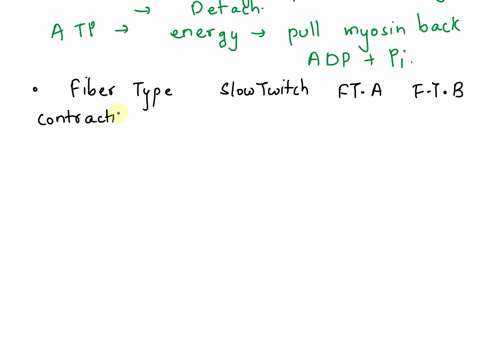 → Detach.
ATP → energy → pull myosin back
ADP + Pi.
• Fiber Type Slow Twitch FT.A F.T.B
contracti